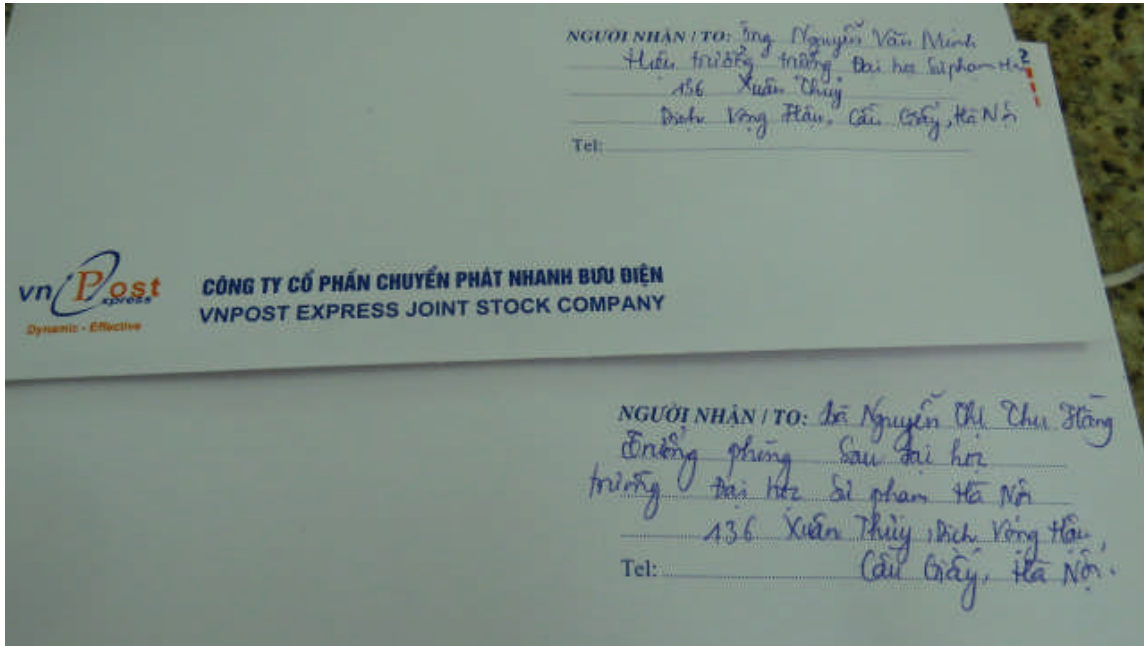 NGƯỜI NHẬN / TO: Ông Nguyễn Văn Minh
Hiệu trưởng trường Đại học Sư phạm Hà
136 Xuân Thủy
Dịch Vọng Hậu, Cầu Giấy, Hà Nội
Tel:
2
vnPost
Express
Dynamic - Effective
CÔNG TY CỔ PHẦN CHUYỂN PHÁT NHANH BƯU ĐIỆN
VNPOST EXPRESS JOINT STOCK COMPANY
NGƯỜI NHẬN / TO: Bà Nguyễn Thị Thu Hằng
Trưởng phòng Sau đại học
trường Đại học Sư phạm Hà Nội
136 Xuân Thủy, Dịch Vọng Hậu,
Tel: Cầu Giấy, Hà Nội.